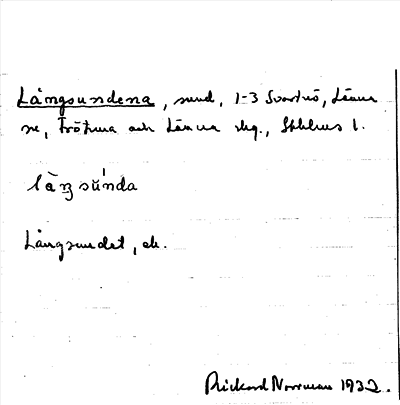 Långsundena, sund, 1-3 Svartnö, Länna
sn, Frötuna och Länna skg., Sthlms l.
låŋsùnda
Långsundet, ek.
Rickard Norrman 1932.